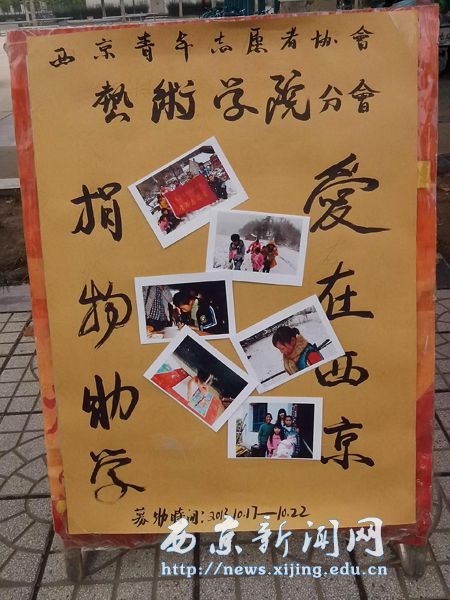 西京青年志愿者协會
藝術学院分會
愛在西京
捐物助学
募物時间:2013.10.17—10.22
西京新闻网
http://news.xijing.edu.cn